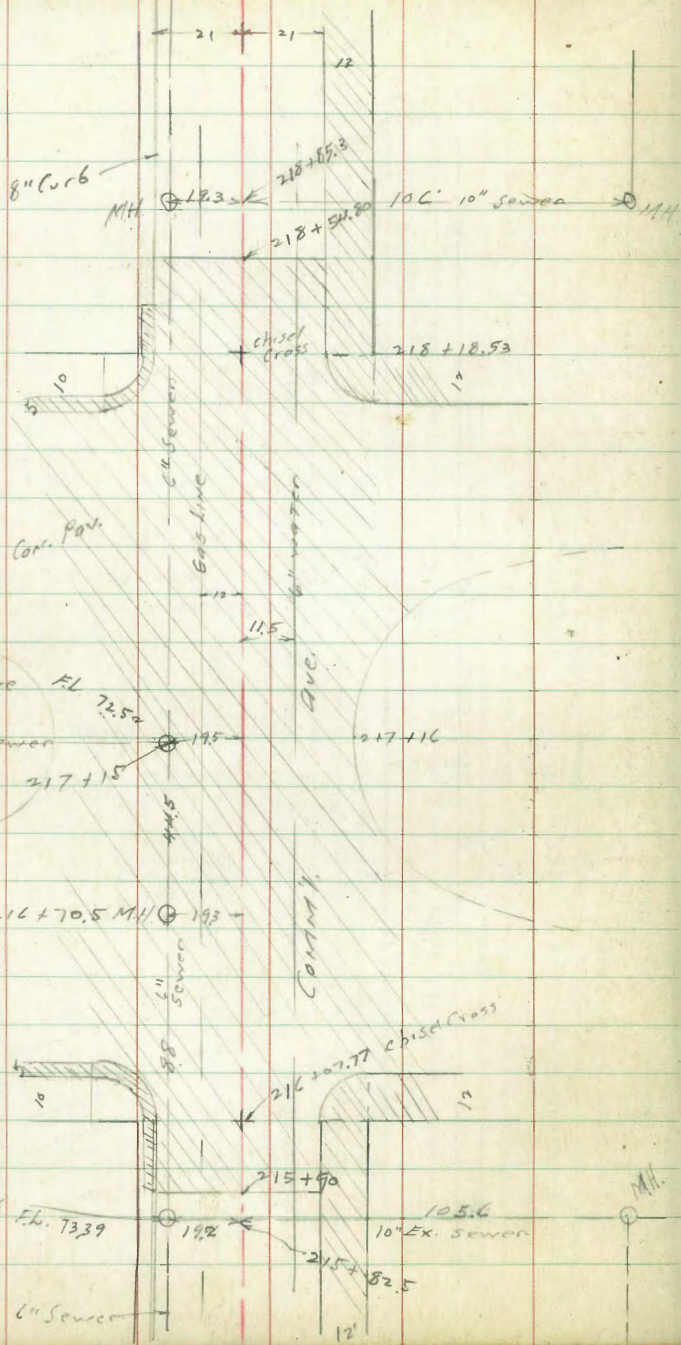 21 21
12
8" Curb
218+85.3
MH 19.3 106' 10" Sewer MH
218+54.80
chisel
Cross
218+18.53
10
5
12
6" Sewer
Gas Line
6" Water
Con. Pav.
12
11.5
Ave.
F.L.
72.50
19.5
217+16
217+15
44.5
16+70.5 MH 19.3
6"
Sewer
88
Comm'l.
216+07.77 chisel Cross
5
10
12
215+90
M.H.
F.L. 73.39 19.2 105.6
10" Ex. Sewer
215+82.5
6" Sewer
12'